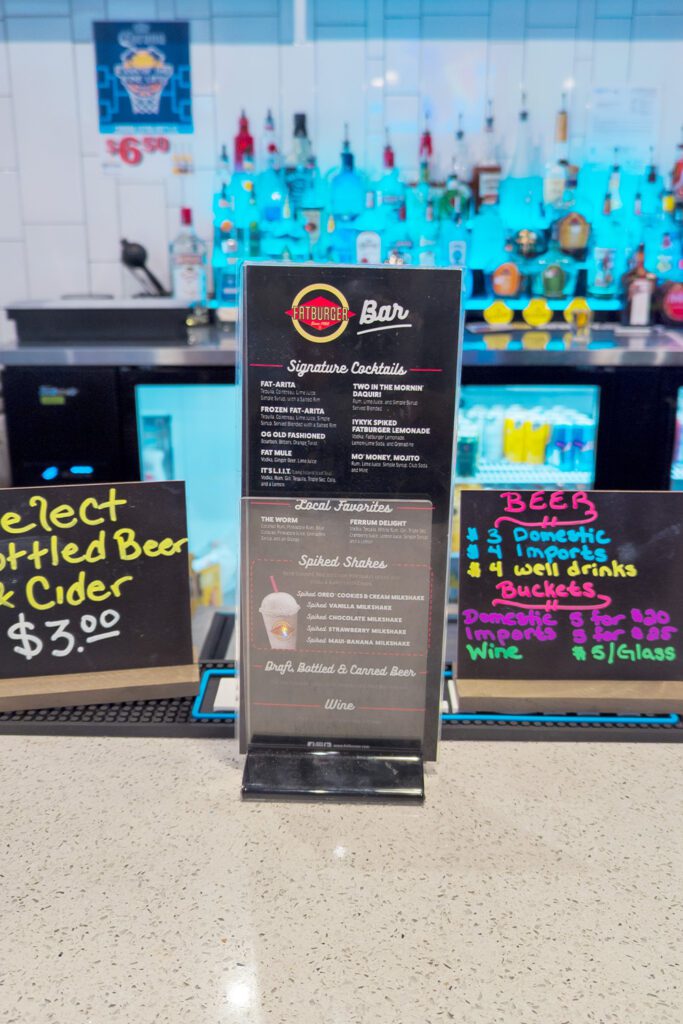 $6.50
FATBURGER
Bar
Signature Cocktails
FAT-ARITA
Tequila, Cointreau, Lime Juice,
Simple Syrup, with a Salted Rim
FROZEN FAT-ARITA
Tequila, Cointreau, Lime Juice, Simple
Syrup, Served Blended with a Salted Rim
OG OLD FASHIONED
Bourbon, Bitters, Orange Twist
FAT MULE
Vodka, Ginger Beer, Lime Juice
IT'S L.I.I.T.
Vodka, Rum, Gin, Tequila, Triple Sec, Cola,
and a Lemon
TWO IN THE MORNIN'
DAQUIRI
Rum, Lime Juice, and Simple Syrup
Served Blended
IYKYK SPIKED
FATBURGER LEMONADE
Vodka, Fatburger Lemonade,
Lemon-Lime Soda, and Grenadine
MO' MONEY, MOJITO
Rum, Lime Juice, Simple Syrup, Club Soda
and Mint
Local Favorites
THE WORM
FERRUM DELIGHT
Spiked Shakes
Spiked OREO COOKIES & CREAM MILKSHAKE
Spiked VANILLA MILKSHAKE
Spiked CHOCOLATE MILKSHAKE
Spiked STRAWBERRY MILKSHAKE
Spiked MAUI-BANANA MILKSHAKE
Draft, Bottled & Canned Beer
Wine
elect
ottled Beer
& Cider
$3.00
BEER
$3 Domestic
$4 Imports
$4 well drinks
Buckets
Domestic 5 for $20
Imports 5 for $25
Wine $5/Glass